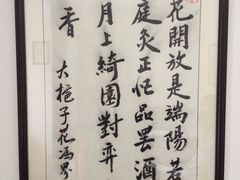 花開放是端陽若
庭炙正忙品罢酒
月上綺園對弈
香
大栀子花馮畧